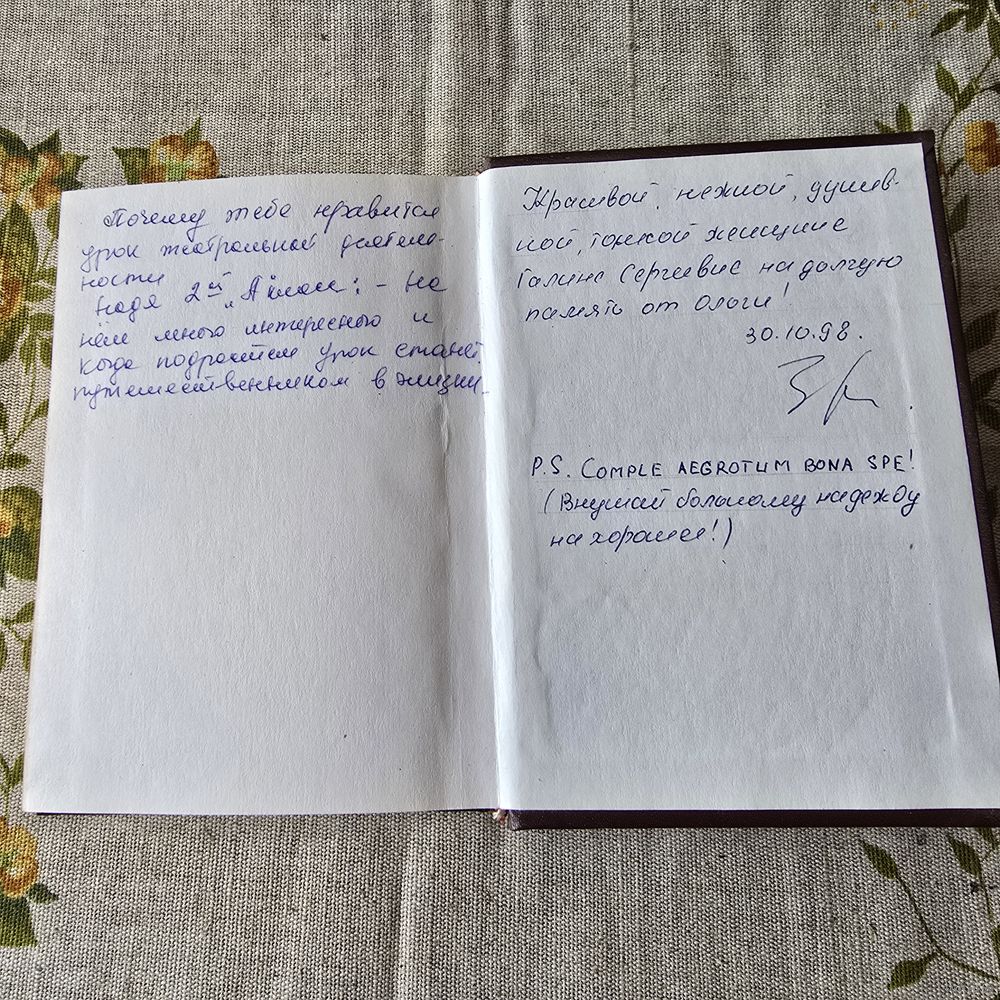 Почему тебе нравится
урок театральной деятель-
ности
Надя 2й "А класс: - На
нём много интересного и
когда подрастем урок станет
путешественником в жизни.
Красивой, нежной, душев-
ной, тонкой женщине
Галине Сергевне на долгую
память от Ольги!
30.10.98.
P.S. COMPLE AEGROTUM BONA SPE!
(Внушай больному надежду
на хорошее!)